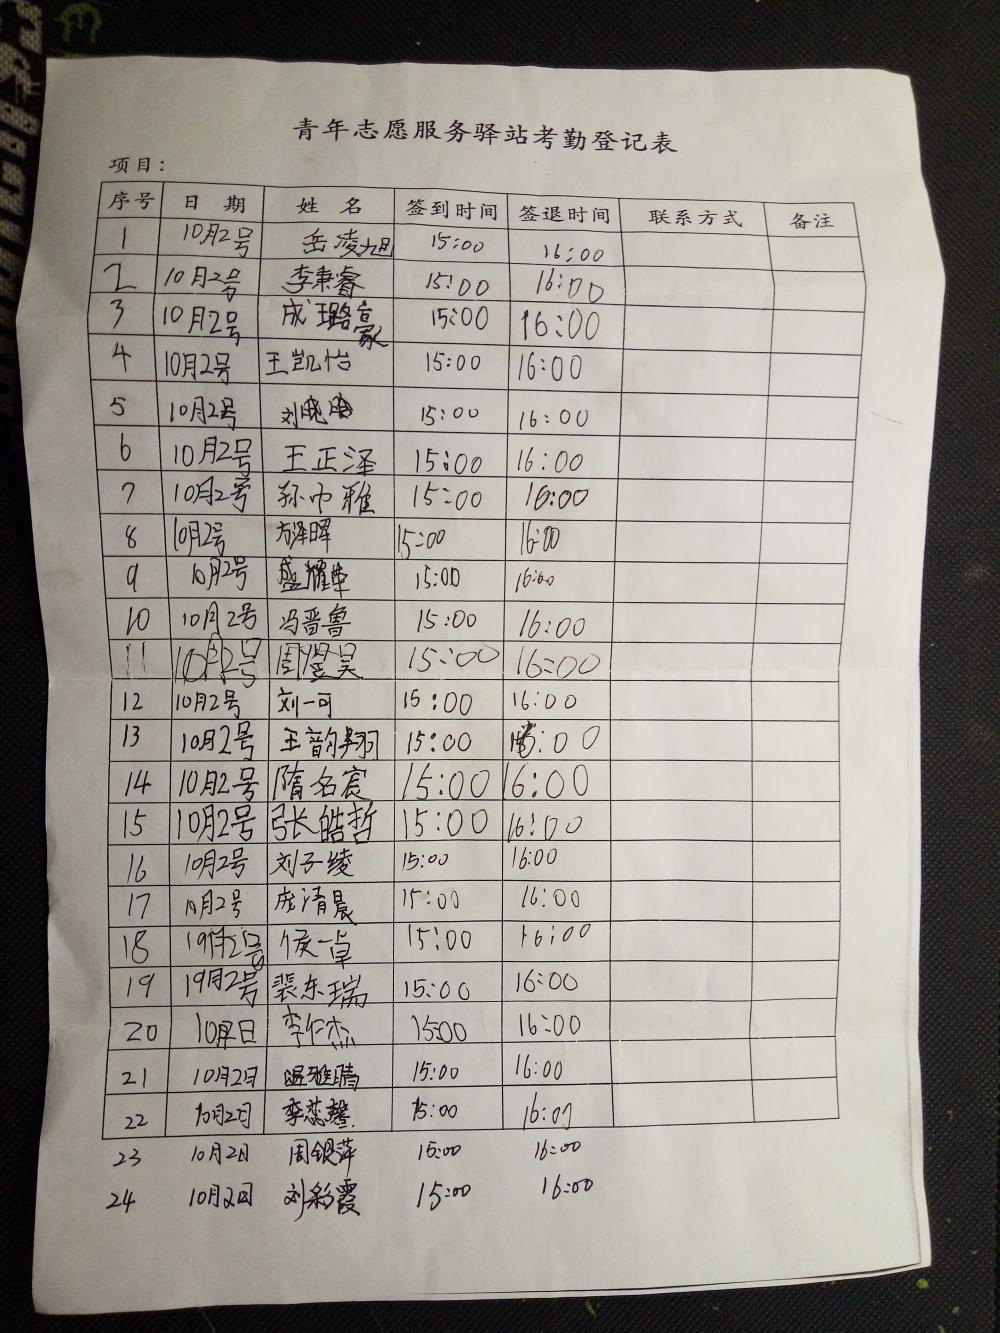 青年志愿服务驿站考勤登记表
项目：
序号 日期 姓名 签到时间 签退时间 联系方式 备注
1 10月2号 岳凌旭 15:00 16:00
2 10月2号 李秉睿 15:00 16:00
3 10月2号 成璐豪 15:00 16:00
4 10月2号 王凯怡 15:00 16:00
5 10月2号 刘晓 15:00 16:00
6 10月2号 王正泽 15:00 16:00
7 10月2号 孙巾雅 15:00 16:00
8 10月2号 方泽晖 15:00 16:00
9 10月2号 盛耀华 15:00 16:00
10 10月2号 冯晋鲁 15:00 16:00
11 10月2号 周煜昊 15:00 16:00
12 10月2号 刘一可 15:00 16:00
13 10月2号 王韵翔 15:00 16:00
14 10月2号 隋名宸 15:00 16:00
15 10月2号 张皓哲 15:00 16:00
16 10月2号 刘子绫 15:00 16:00
17 10月2号 庞清晨 15:00 16:00
18 19月2号 侯一卓 15:00 16:00
19 19月2号 裴东瑞 15:00 16:00
20 李仁杰 15:00 16:00
21 10月2日 温雅晴 15:00 16:00
22 10月2日 李蕊馨 15:00 16:00
23 10月2日 周银萍 15:00 16:00
24 10月2日 刘彩霞 15:00 16:00